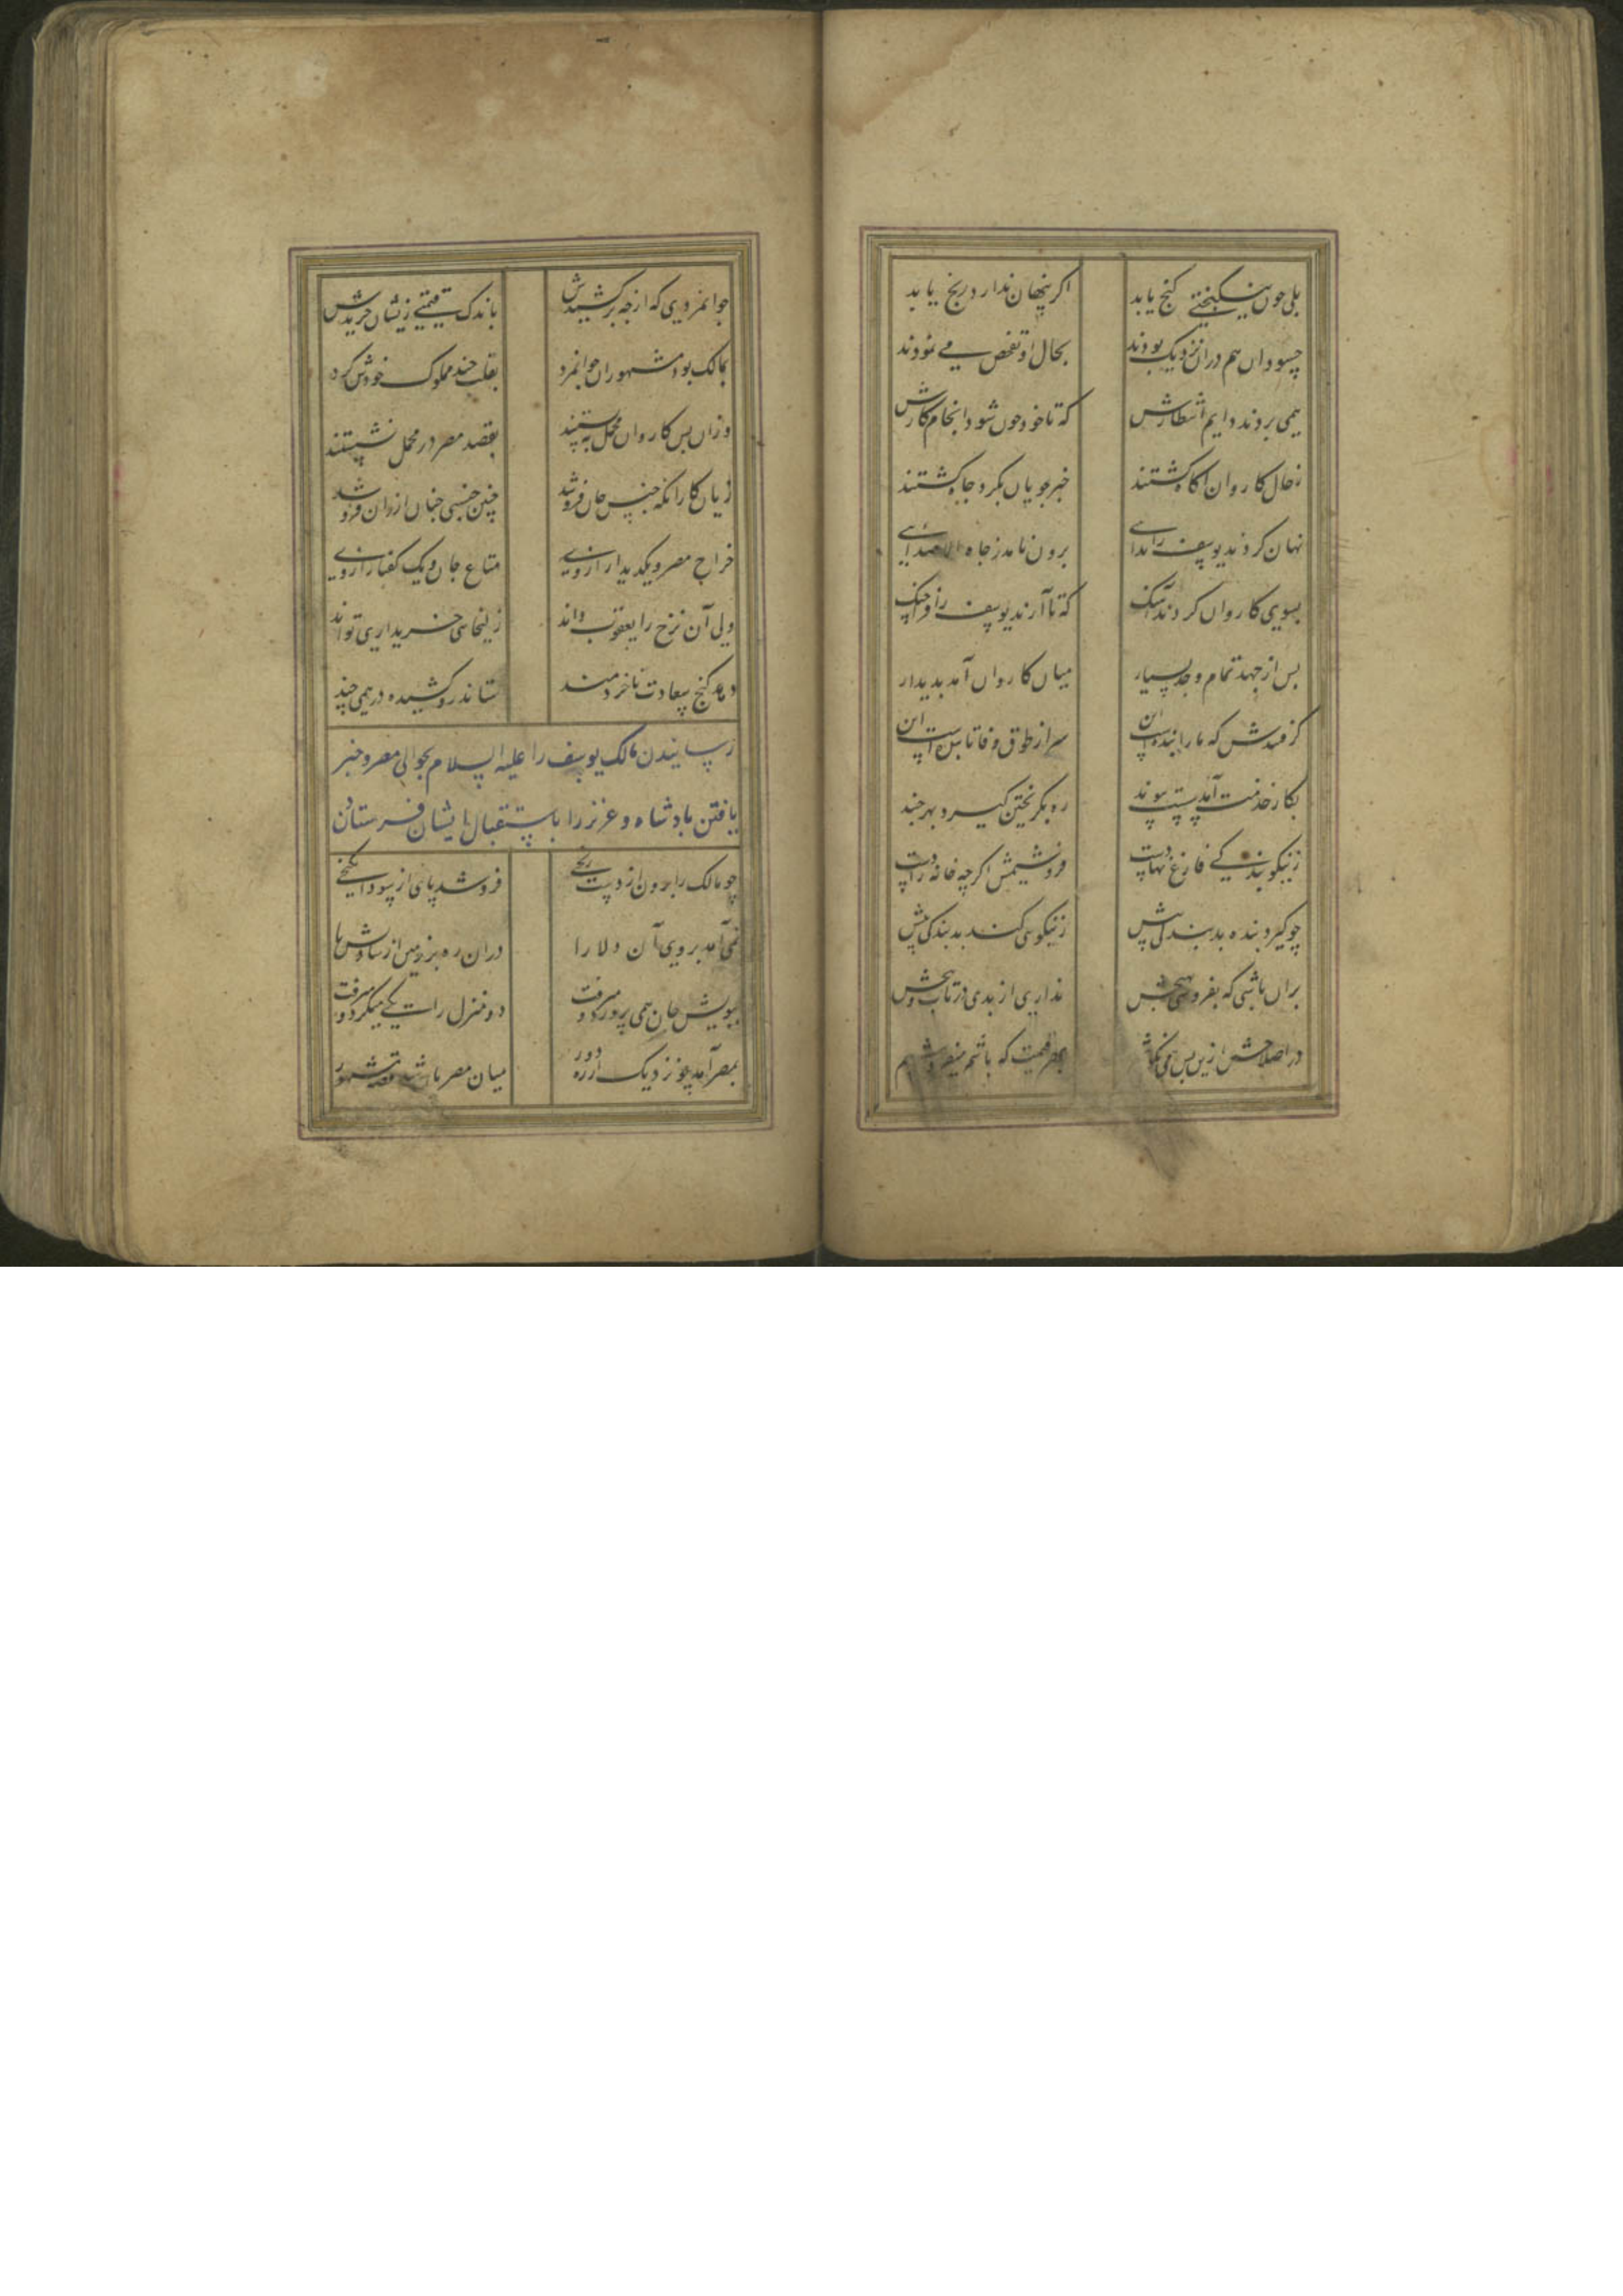 بلی چون نیکبختی کنج یابد اکر پنهان ندارد رنج یابد
حسودان هم دران نزدیک بودند بحال او تفحص می نمودند
همی بردند دایم انتظارش که تا خود چون شود انجام کارش
زحال کاروان آکاه کشتند خبر جویان بکرد چاه کشتند
نهان کردند یوسف را ندایی برون نامد ز چاه الا صدایی
بسوی کاروان کردند آهنک که تا آرند یوسف را فراچنک
پس از جهد تمام و جد بسیار میان کاروان آمد پدیدار
کرفتندش که ما را بنده است این سر از طوق وفا تابنده است این
بکار خدمت آمد سست پیوند ره بکریختن کیرد بهر چند
زنیکو بندکی فارغ نهادست فروشیمش اکرچه خانه زادست
چو کیرد بنده بد بندکی پیش زنیکویی کند بد بندکی بیش
بران باشی که بفروشی بهیچش نداری از بدی در تاب و پیچش
در اصلاحش ازین پس می نکوشم بهر قیمت که باشد میفروشم
جوانمردی که از چه برکشیدش باندک قیمتی زیشان خریدش
بمالک بود مشهور ان جوانمرد بفلسی چند مملوک خودش کرد
وزان پس کاروان محمل ببستند بقصد مصر در محمل نشستند
زیان کار آنکه جنس جان فروشد چنین جنسی چنان ارزان فروشد
خراج مصر و یکدیدار از وی متاع جان و یک کفتار از وی
ولی آن نرخ را یعقوب داند زلیخاهی خریداری تواند
دهد کنج سعادت ناخردمند ستاند رو کشیده درهمی چند
رسانیدن مالک یوسف را علیه السلام بحوالی مصر و خبر
یافتن پادشاه و عزیز را باستقبال ایشان فرستادن
چو مالک را برون از دست رنجی فروشد پای از سودا بکنجی
نمی آمد بروی آن دلارا دران ره بر زمین از شادیش پا
ببویش جان همی پرورد و میرفت دو منزل را یکی میکرد و میرفت
بمصر آمد چو نزدیک از ره دور میان مصریان شد قصه مشهور